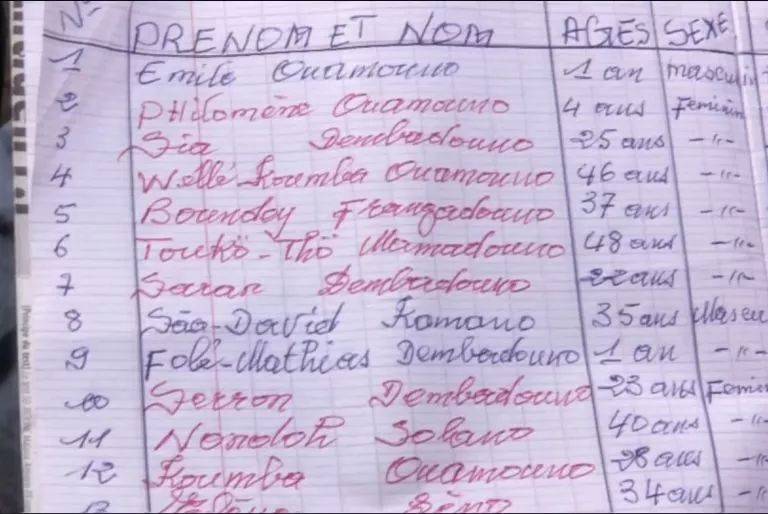 N° PRENOM ET NOM AGES SEXE
1 Emile Ouamouno 1 an masculin
2 PHilomène Ouamouno 4 ans Feminin
3 Sia Dembadouno 25 ans -"-
4 Wellé-Koumba Ouamouno 46 ans -"-
5 Boundoy Frangadouno 37 ans -"-
6 Toukö-Thö Mamadouno 48 ans -"-
7 Saran Dembadouno 22 ans -"-
8 Säa-David Kamano 35 ans Mascu
9 Folé-Mathias Dembadouno 1 an -"-
10 Serron Dembadouno 23 ans Femin
11 Nondoh Solano 40 ans -"-
12 Koumba Ouamouno 28 ans -"-
34 ans -"-